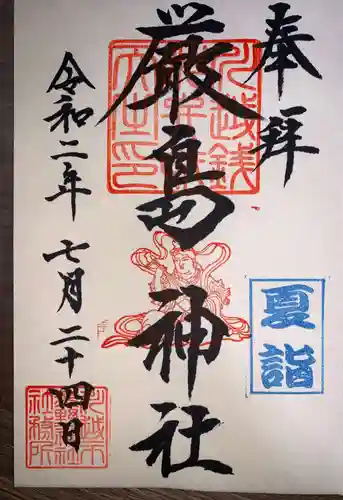 奉拝
厳島神社
令和二年七月二十四日
夏詣
川越銭